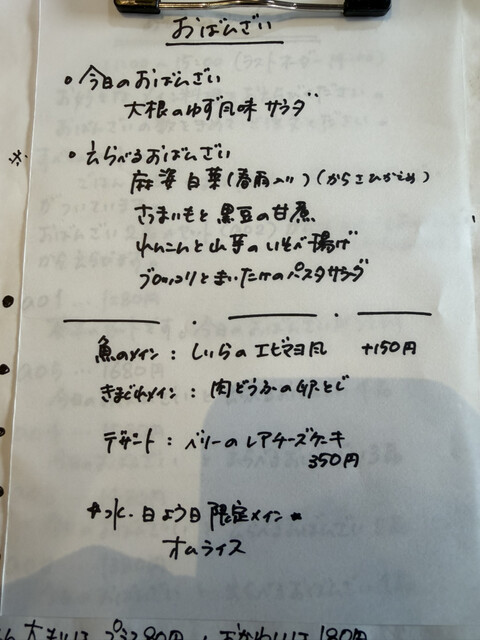 おばんざい
• 今日のおばんざい
大根のゆず風味サラダ
• えらべるおばんざい
麻婆白菜(春雨入り)(からさひかえめ)
さつまいもと黒豆の甘煮
れんこんと山芋のいそべ揚げ
ブロッコリとまいたけのパスタサラダ
魚のメイン：しいらのエビマヨ風 +150円
きまぐれメイン：肉どうふの卵とじ
デザート：ベリーのレアチーズケーキ
350円
*水・日よう日限定メイン*
オムライス